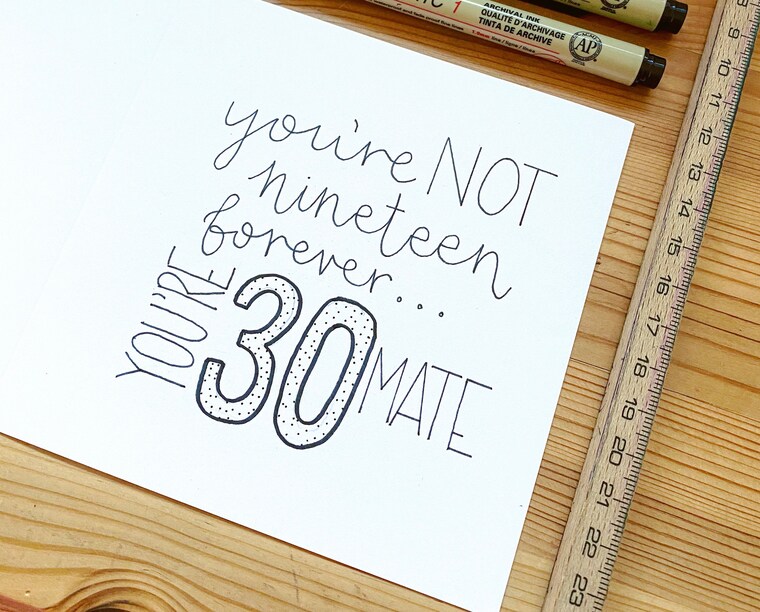 1
ARCHIVAL INK
QUALITÉ D'ARCHIVAGE
TINTA DE ARCHIVE
AP
you're NOT
nineteen
forever...
YOU'RE
30
MATE
9
10
11
12
13
14
15
16
17
18
19
20
21
22
23